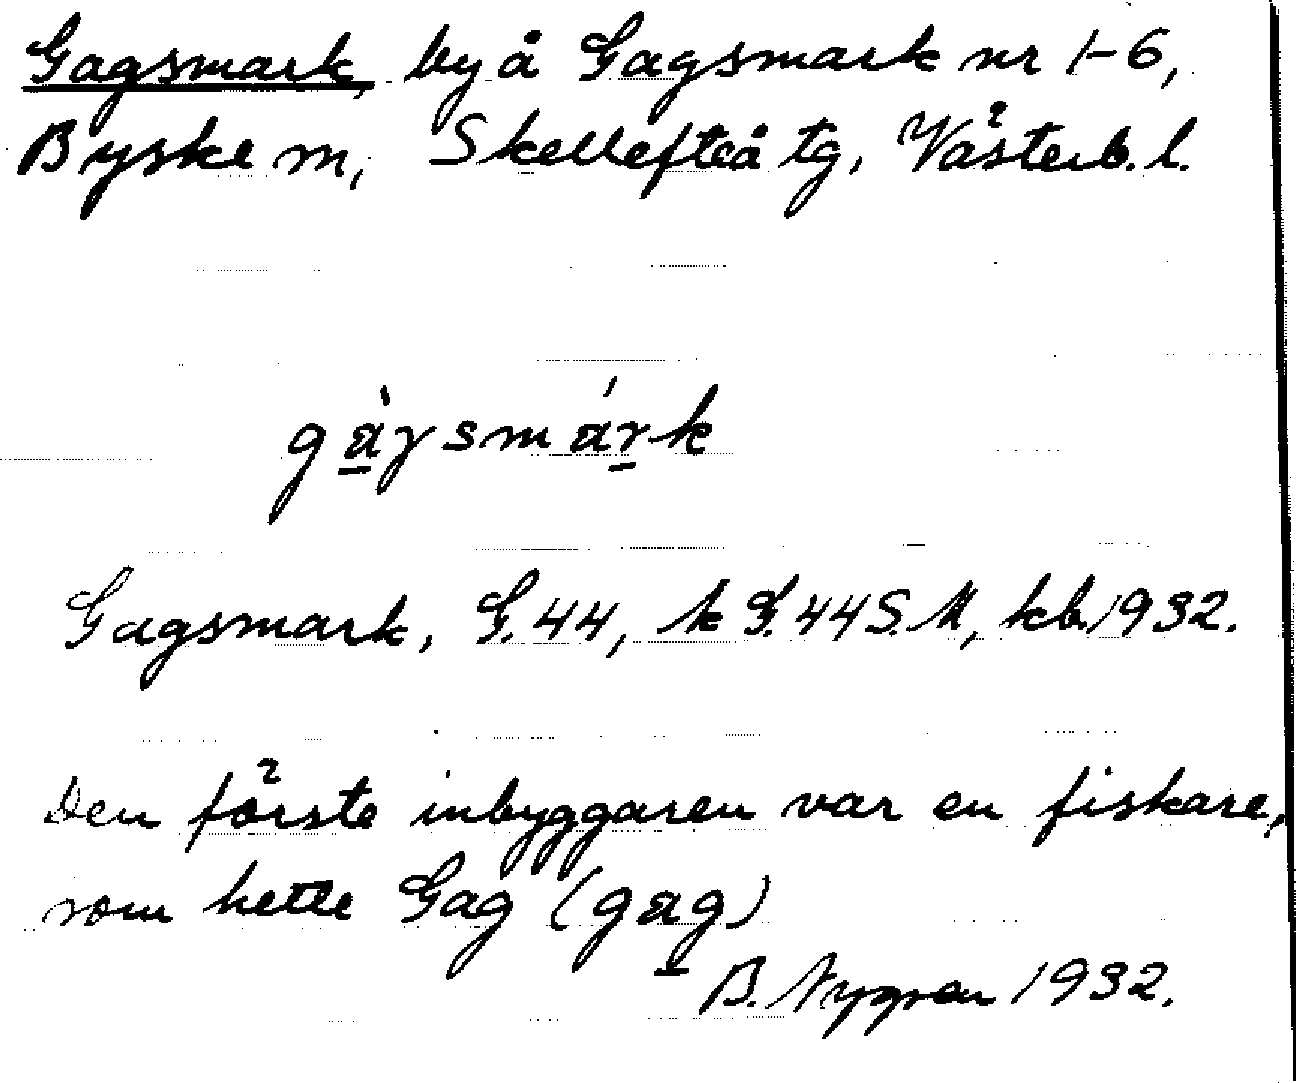 Gagsmark, by å Gagsmark nr 1-6,
Byske m, Skellefteå tg, Västerb. l.
gàγsmárk
Gagsmark, G. 44, k G. 44 S. M, kb. 1932.
Den förste inbyggaren var en fiskare,
som hette Gag (gag)
B. Nygren 1932.